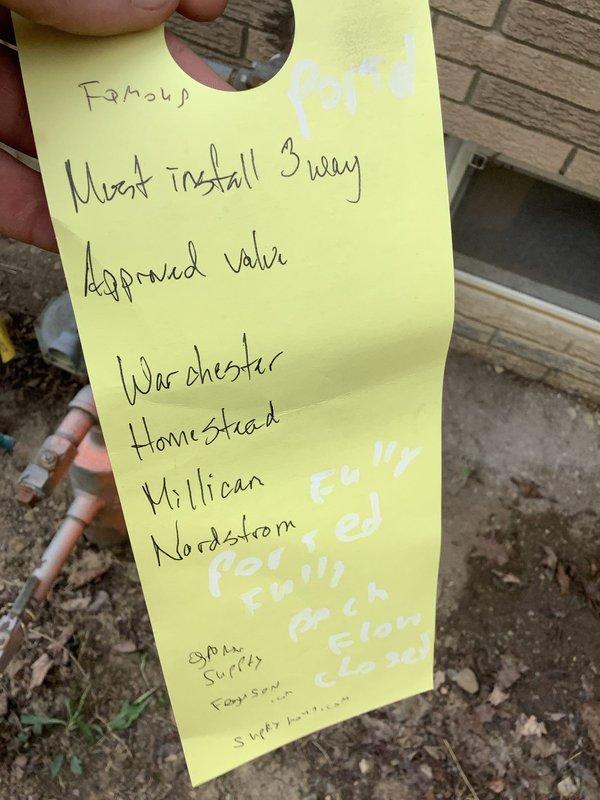 Famous
Porrd
Must install 3 way
Approved valve
Warchester
Homestead
Millican
Nordstrom
Fully
Porred
Fully
Back
Flow
closed
Supply
Ferguson.com
Supplyhouse.com